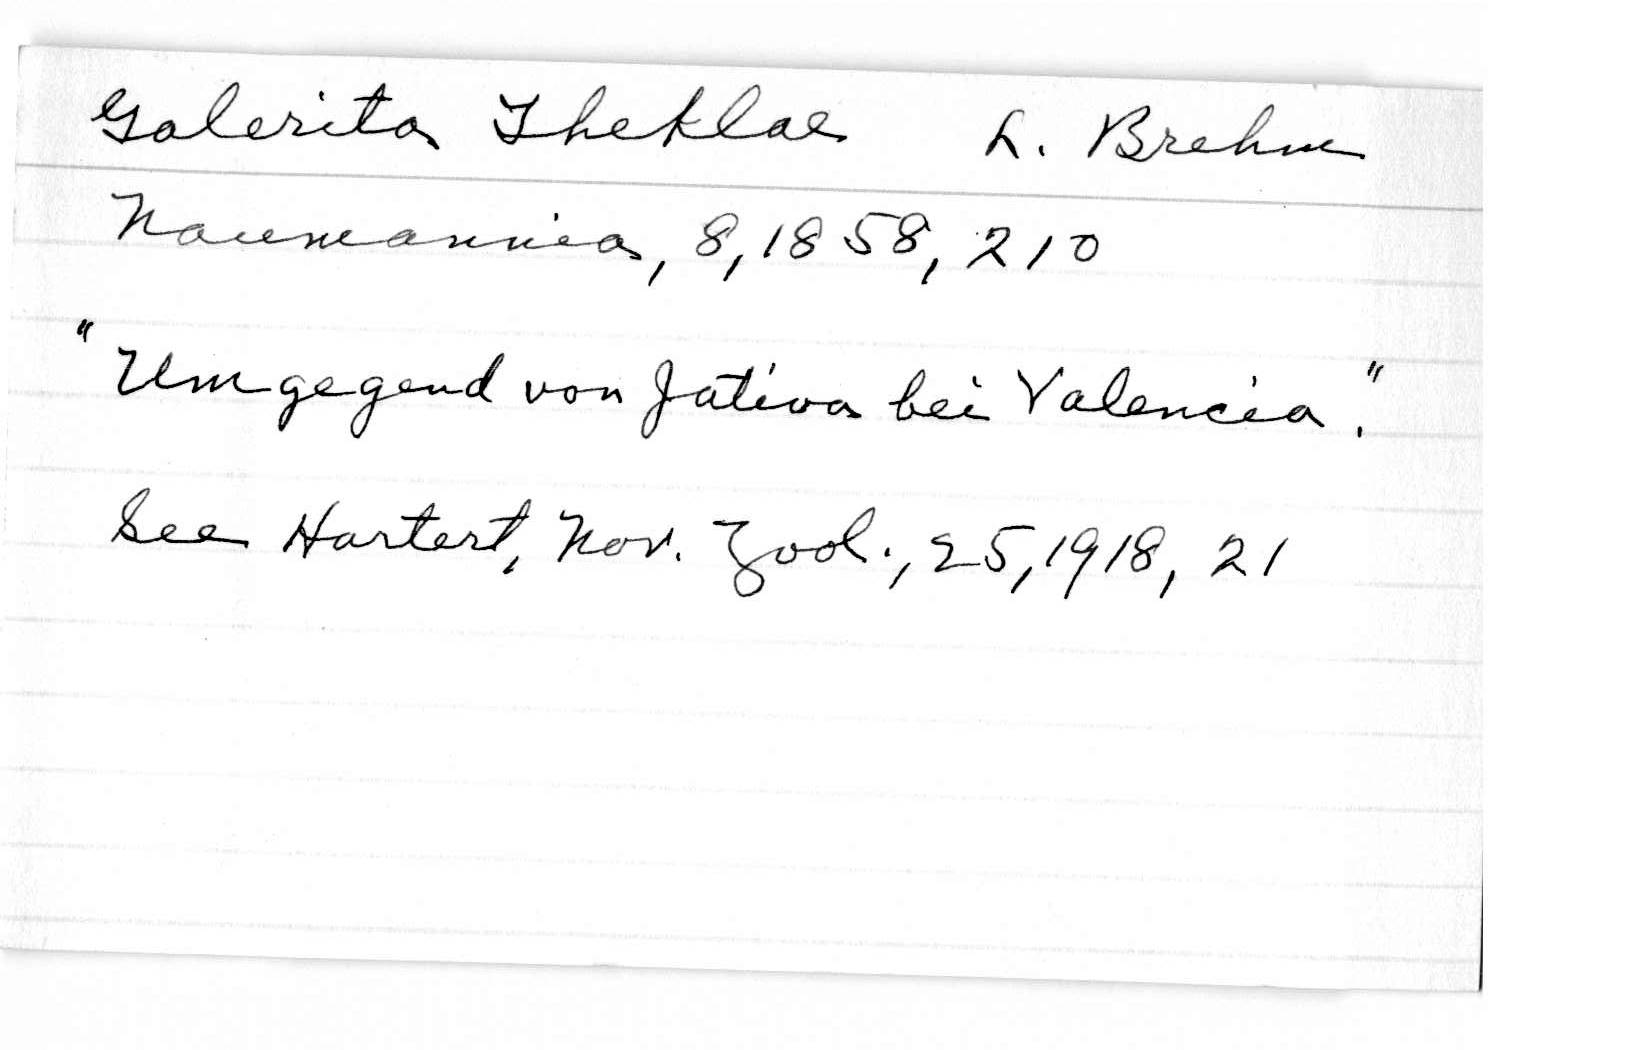 Galerita Theklae L. Brehm
Naumannia, 8, 1858, 210
"Umgegend von Jativa bei Valencia."
See Hartert, Nov. Zool., 25, 1918, 21